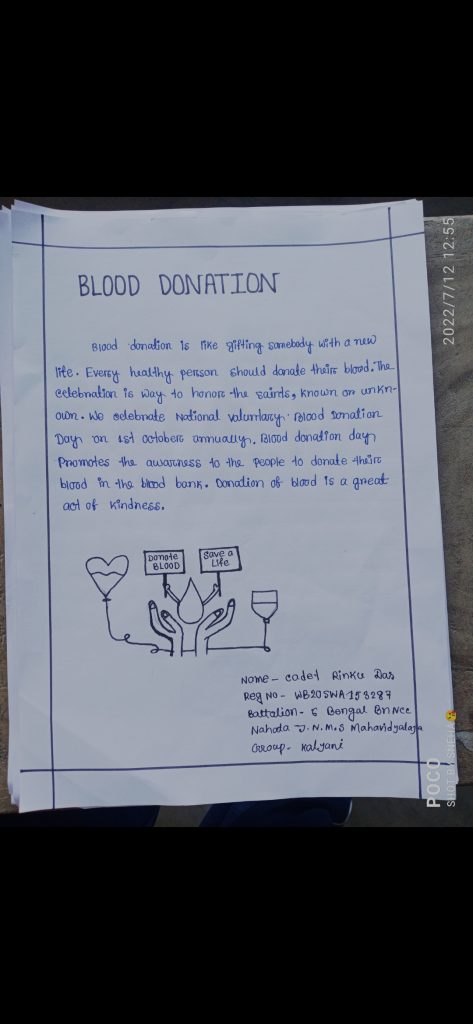 BLOOD DONATION
Blood donation is like gifting somebody with a new
life. Every healthy person should donate their blood. The
celebration is way to honor the saints, known or unkn-
own. We celebrate National voluntary Blood Donation
Day on 1st october annually. Blood donation day
Promotes the awarness to the people to donate their
blood in the blood bank. Donation of blood is a great
act of kindness.
Donate
BLOOD
Save a
Life
Name - cadet Rinku Das
Reg No - WB20SWA153287
Battalion - 5 Bengal Bn Ncc
Nahoda J.N.M.S Mahavidyalaya
Group - Kalyani
POCO
SHOT BY SNEHA
2022/7/12 12:55